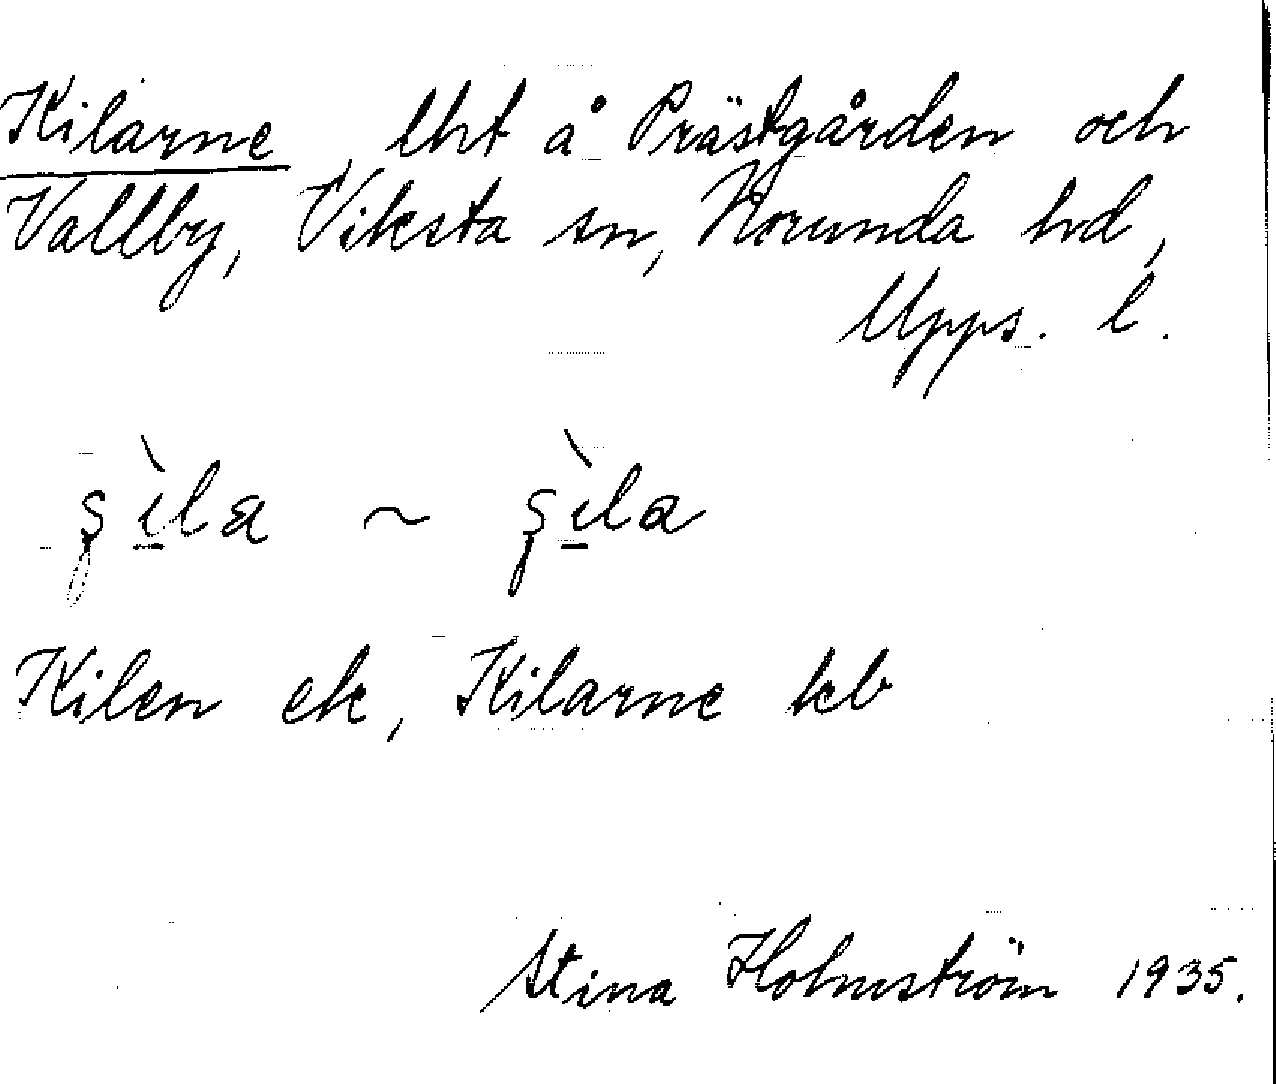 Kilarne, lht å Prästgården och
Vallby, Viksta sn, Norunda hd,
Upps. l.
ʂìla ~ ʂìla
Kilen ek, Kilarne kb
Stina Holmström 1935.